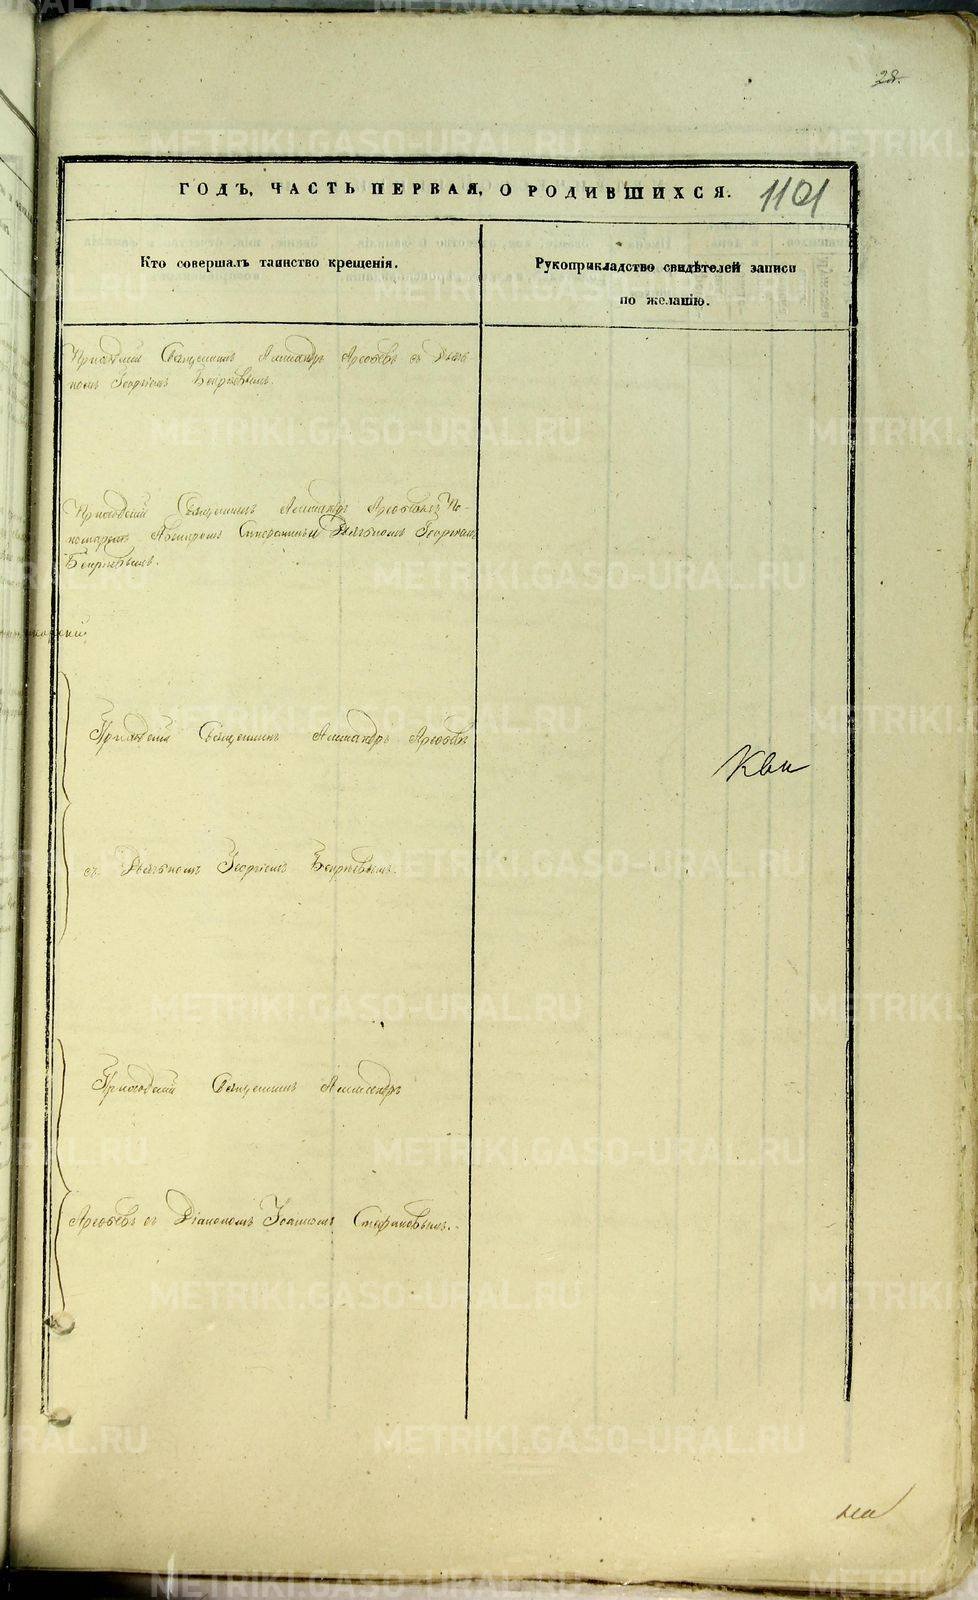 28.
ГОДЪ, ЧАСТЬ ПЕРВАЯ, О РОДИВШИХСЯ.
1101
Кто совершалъ таинство крещенія.
Рукоприкладство свидѣтелей записи
по желанію.
Приходскій Священникъ Александръ Арефьевъ съ Дьяч-
комъ Георгіемъ
Приходскій Священникъ Александръ Арефьевъ По-
номаремъ и Дьячкомъ Георгіемъ
Приходскій Священникъ Александръ Арефьевъ
съ Дьячкомъ Георгіемъ
Приходскій Священникъ Александръ
Арефьевъ съ Діакономъ Іоанномъ Стефановымъ.
METRIKI.GASO-URAL.RU